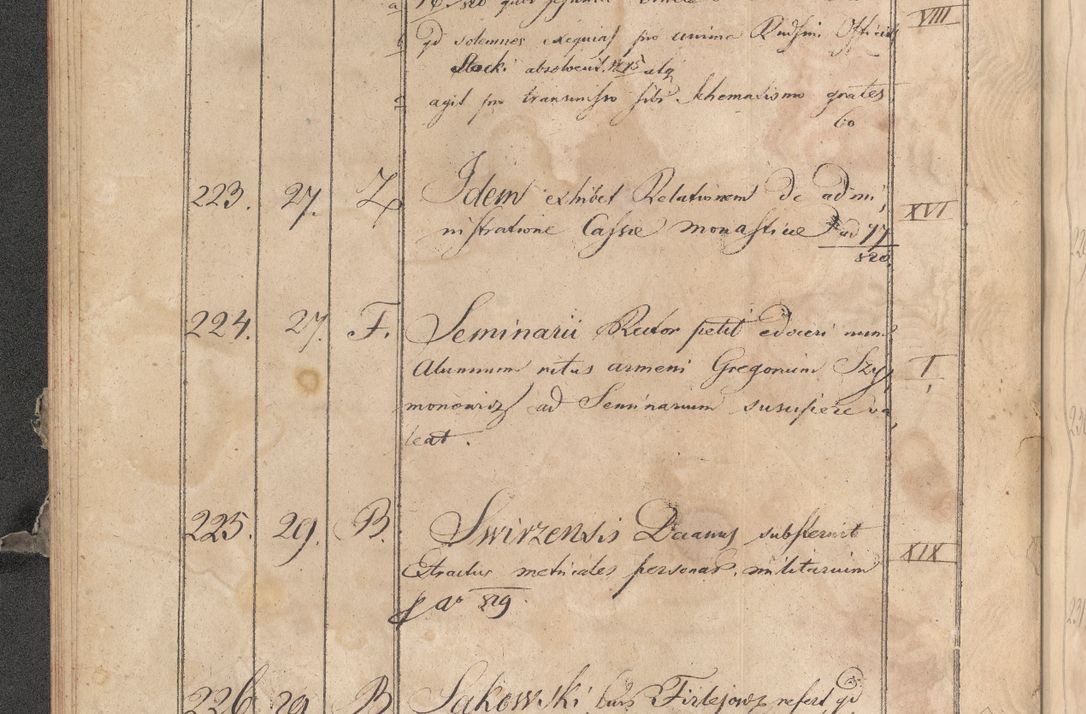 VIII
b qd solemnes exequias pro anima Rndssmi Officialis
absolverit. 1215 atq
c agit pro transmisso sibi Schematismo grates
60
223. 27. Z Idem exhibet Relationem de admi,
nistratione Cassae monasticae ad 77 XVI
820.
224. 27. F. Seminarii Rector petit edoceri num
Alumnum ritus armeni Gregorium Szy, I
monowicz ad Seminarium suscipere va,
leat.
225. 29. B. Swirzensis Decanus substernit
Extractus metricales personar. militarium XIX
p Ao 819.
226. 29. B. Sakowski Firlejow refert qd